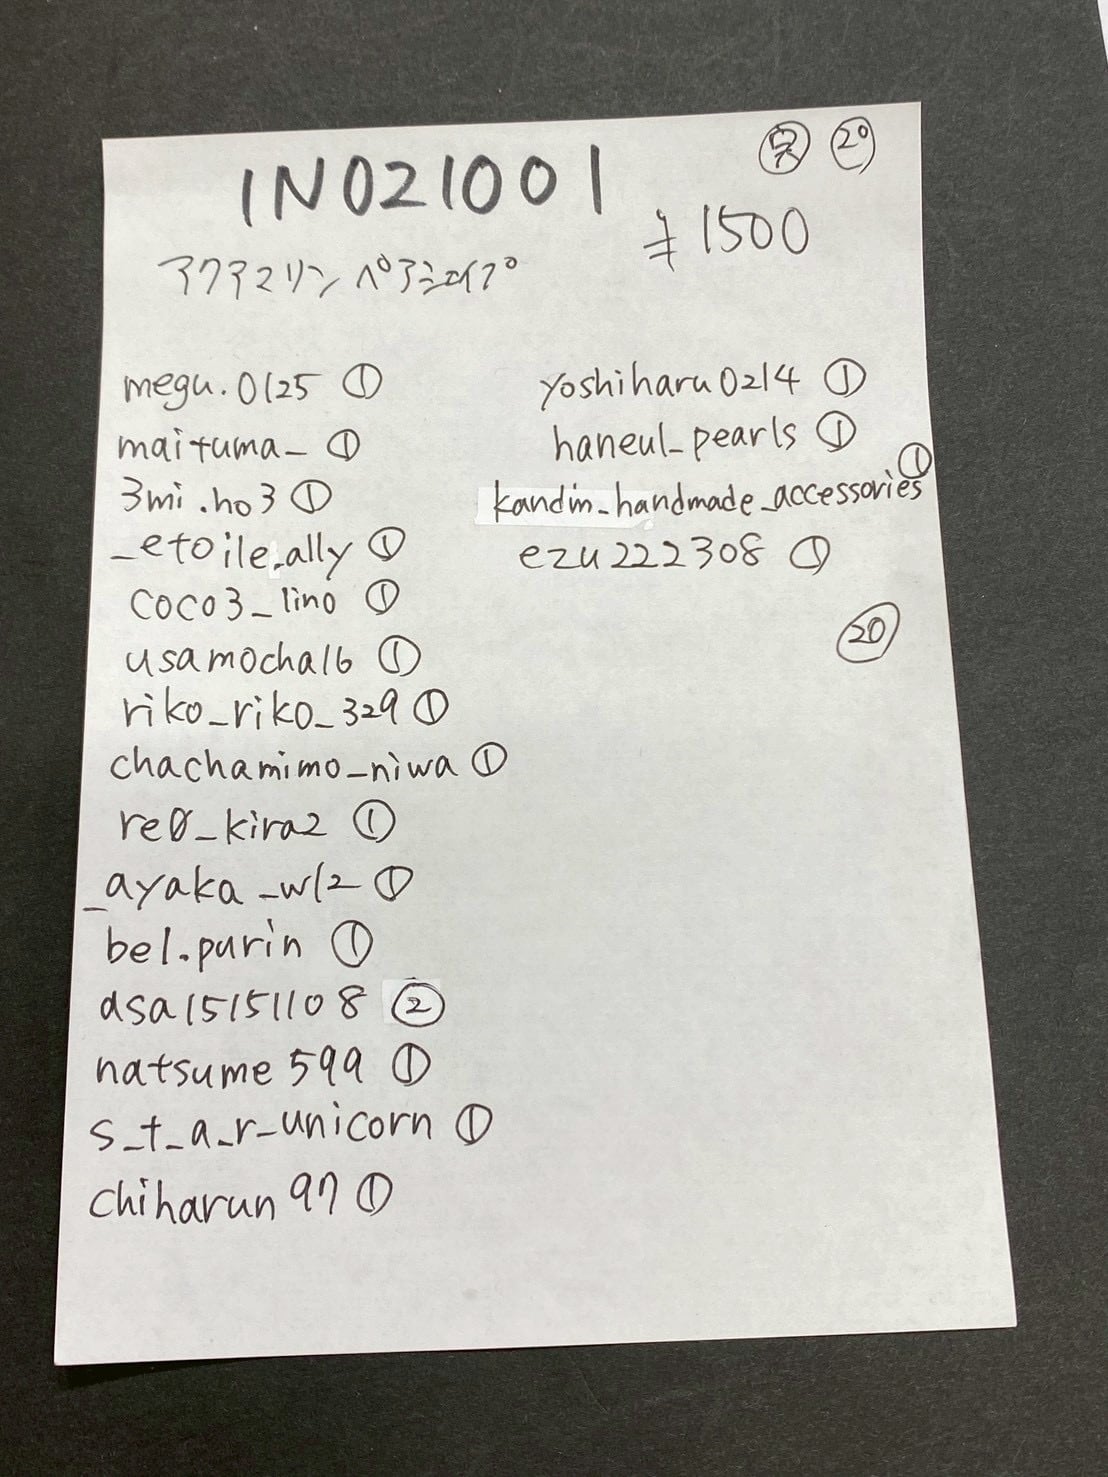 ㋲ ⑳
IN021001
¥1500
アクアマリン ペアシェイプ
megu.0125 ①
maituma_ ①
3mi.ho3 ①
_etoile.ally ①
coco3_lino ①
usamocha16 ①
riko_riko_329 ①
chachamimo_niwa ①
re0_kira2 ①
_ayaka_w12 ①
bel.purin ①
asa15151108 ②
natsume599 ①
s_t_a_r_unicorn ①
chiharun97 ①
yoshiharu0214 ①
haneul_pearls ①
kandin_handmade_accessories ①
ezu222308 ①
⑳